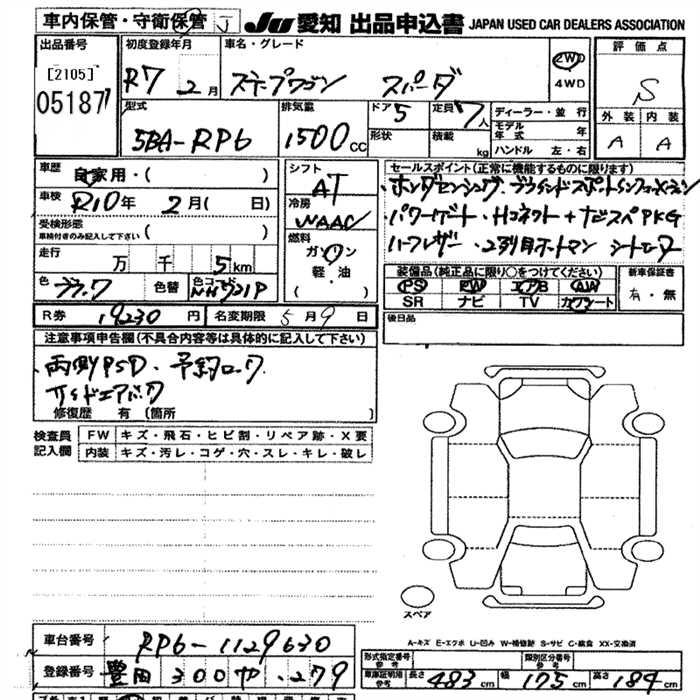 車内保管・守衛保管 J
JU 愛知 出品申込書 JAPAN USED CAR DEALERS ASSOCIATION
出品番号
[2105]
05187
初度登録年月
R7 2月
車名・グレード
ステップワゴン スパーダ
2WD
4WD
評価点
S
外装 内装
A A
型式
5BA-RP6
排気量
1500 CC
ドア 5
形状
定員 7人
積載 kg
ディーラー・並行
モデル年式 年
ハンドル 左・右
車歴
自家用・( )
車検
R10年 2月( 日)
受検形態
車検付きのみ記入して下さい ( )
走行
万 千 5km
色 ブラック 色替 色コード NH921P
シフト
AT
冷房
WAAC
燃料
ガソリン
軽・油
( )
セールスポイント(正常に機能するものに限り)
・ホンダセンシング・ブラインドスポットインフォメーション
パワーゲート・Hコネクト+ナビスペPKG
ハーフレザー・2列目オットマン シートヒーター
装備品(純正品に限り○をつけてください)
PS PW エアB AW
SR ナビ TV カワシート
新車保証書
有・無
R券 19230 円 名変期限 5月9日
後日品
注意事項申告欄(不具合内容等は具体的に記入して下さい)
・両側PSD・予約ロック
サイドエアバック
修復歴 有(箇所 )
検査員記入欄
FW キズ・飛石・ヒビ割・リペア跡・X要
内装 キズ・汚レ・コゲ・穴・スレ・キレ・破レ
スペア
A-キズ E-エクボ U-凹み W-補修跡 S-サビ C-腐食 XX-交換済
車台番号 RP6-1129630
登録番号 豊田 300 や ・279
型式指定番号 参考
類別区分番号 参考
車庫証明用参考 長さ 483 cm 幅 175 cm 高さ 184 cm